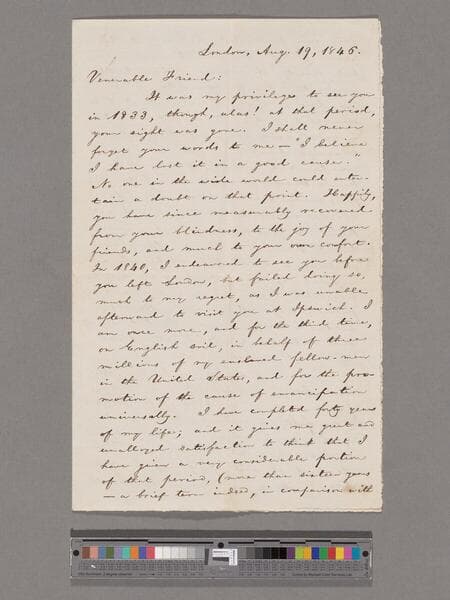 London, Aug. 19, 1846.
Venerable Friend:
It was my privilege to see you
in 1833, though, alas! at that period,
your sight was gone. I shall never
forget your words to me — "I believe
I have lost it in a good cause."
No one in the wide world could enter-
tain a doubt on that point. Happily,
you have since measurably recovered
from your blindness, to the joy of your
friends, and much to your own comfort.
In 1840, I endeavored to see you before
you left London, but failed doing so,
much to my regret, as I was unable
afterward to visit you at Ipswich. I
am once more, and for the third time,
on English soil, in behalf of three
millions of my enslaved fellow-men
in the United States, and for the pro-
motion of the cause of emancipation
universally. I have completed forty years
of my life; and it gives me great and
unalloyed satisfaction to think that I
have given a very considerable portion
of that period, (more than sixteen years
— a brief term indeed, in comparison with